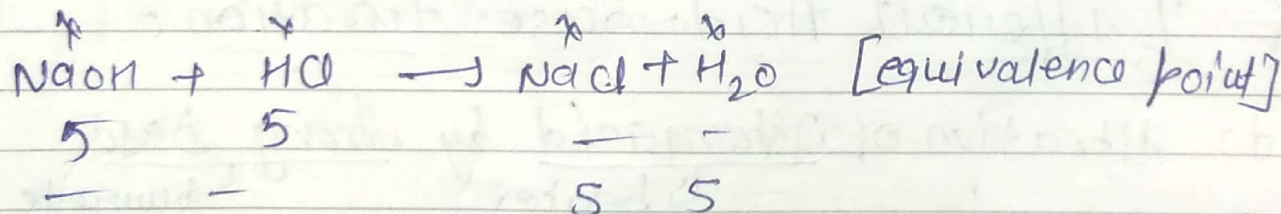 NaOH + HCl → NaCl + H₂O [equivalence point]
5 5 — –
— – 5 5